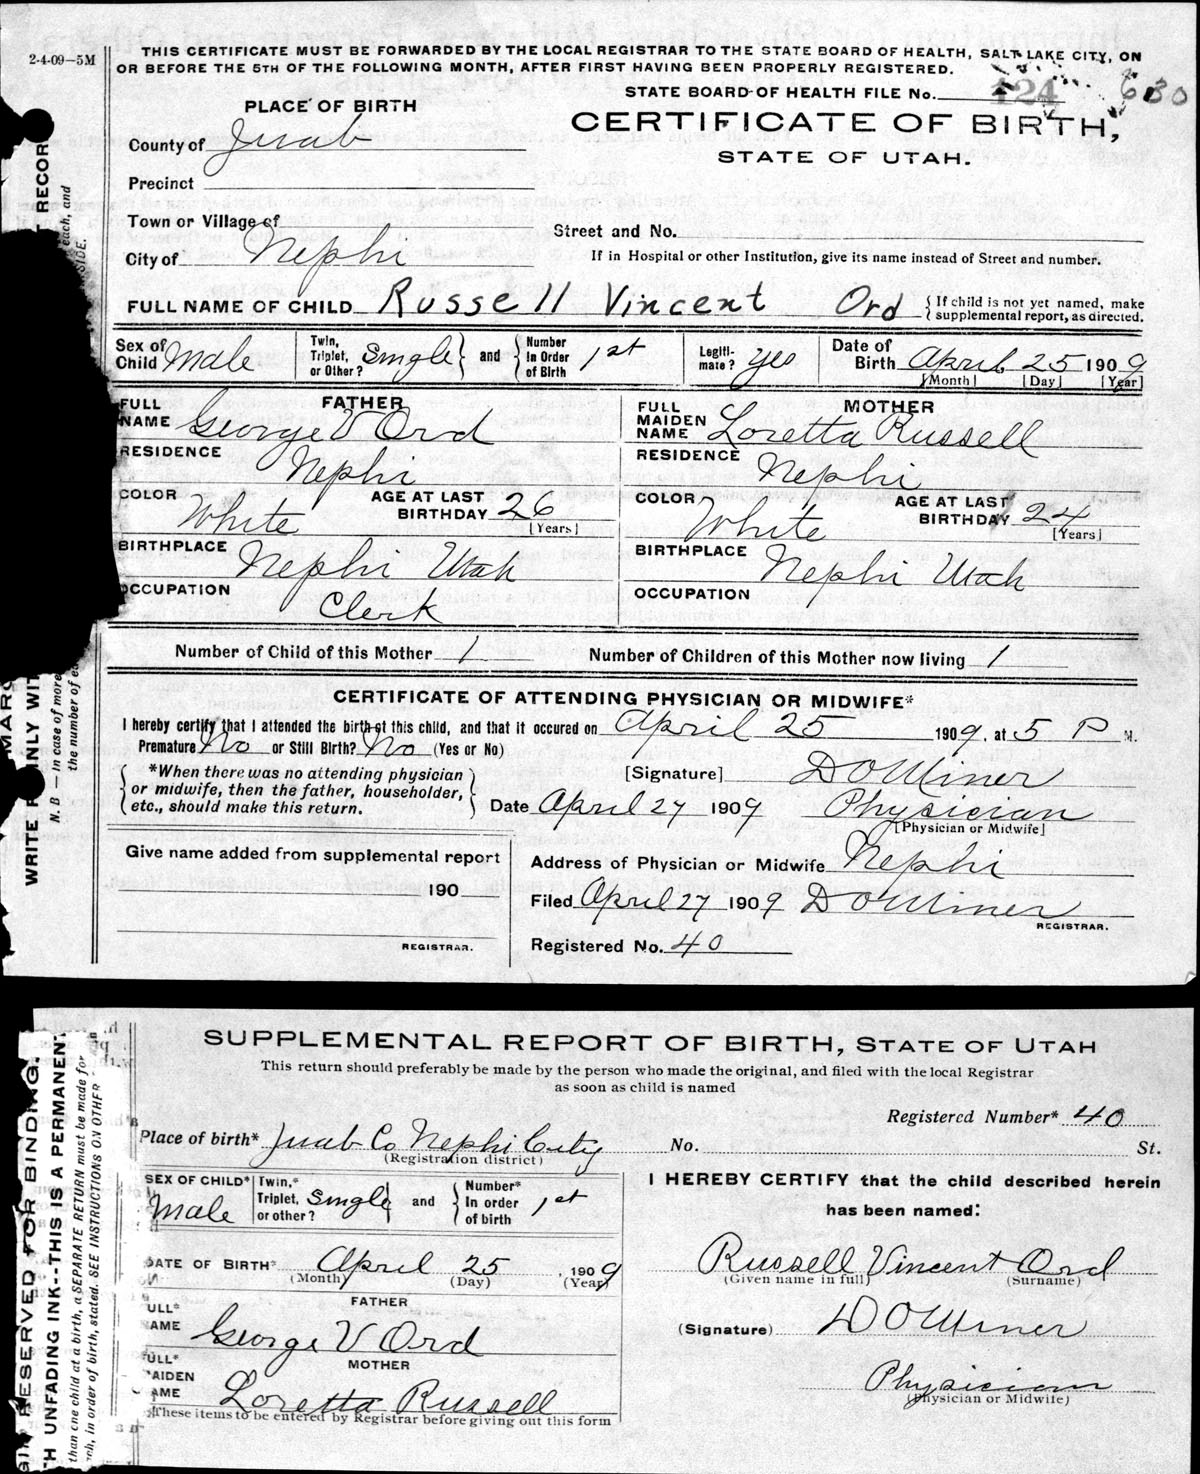 2-4-09—5M
THIS CERTIFICATE MUST BE FORWARDED BY THE LOCAL REGISTRAR TO THE STATE BOARD OF HEALTH, SALT LAKE CITY, ON
OR BEFORE THE 5TH OF THE FOLLOWING MONTH, AFTER FIRST HAVING BEEN PROPERLY REGISTERED.
STATE BOARD OF HEALTH FILE No. 124 630
PLACE OF BIRTH
CERTIFICATE OF BIRTH,
STATE OF UTAH.
County of Juab
Precinct
Town or Village of
Street and No.
City of Nephi
If in Hospital or other Institution, give its name instead of Street and number.
FULL NAME OF CHILD Russell Vincent Ord { If child is not yet named, make supplemental report, as directed.
Sex of Child Male Twin, Triplet, or Other? Single } and { Number In Order of Birth 1st Legiti-mate? Yes Date of Birth April 25 1909
[Month] [Day] [Year]
FATHER
FULL NAME George V Ord
RESIDENCE Nephi
COLOR White AGE AT LAST BIRTHDAY 26 [Years]
BIRTHPLACE Nephi Utah
OCCUPATION Clerk
MOTHER
FULL MAIDEN NAME Loretta Russell
RESIDENCE Nephi
COLOR White AGE AT LAST BIRTHDAY 24 [Years]
BIRTHPLACE Nephi Utah
OCCUPATION
Number of Child of this Mother 1 Number of Children of this Mother now living 1
CERTIFICATE OF ATTENDING PHYSICIAN OR MIDWIFE*
I hereby certify that I attended the birth of this child, and that it occured on April 25 1909, at 5 P M.
Premature No or Still Birth? No (Yes or No)
{ *When there was no attending physician
or midwife, then the father, householder,
etc., should make this return. }
[Signature] D O Miner
Date April 27 1909 Physician
[Physician or Midwife]
Give name added from supplemental report
190
REGISTRAR.
Address of Physician or Midwife Nephi
Filed April 27 1909 D O Miner
REGISTRAR.
Registered No. 40
T RECORD
each, and
SIDE.
MARG
WRITE PLAINLY WIT
N. B — In case of more
the number of ea
SUPPLEMENTAL REPORT OF BIRTH, STATE OF UTAH
This return should preferably be made by the person who made the original, and filed with the local Registrar
as soon as child is named
Registered Number* 40
Place of birth* Juab Co Nephi City No. St.
(Registration district)
SEX OF CHILD* Male Twin,* Triplet, or other? Single } and { Number* In order of birth 1st
DATE OF BIRTH* April 25, 1909
(Month) (Day) (Year)
FATHER
ULL* NAME George V Ord
MOTHER
ULL* AIDEN AME Loretta Russell
*These items to be entered by Registrar before giving out this form
I HEREBY CERTIFY that the child described herein
has been named:
Russell Vincent Ord
(Given name in full) (Surname)
(Signature) D O Miner
Physician
(Physician or Midwife)
GIN RESERVED FOR BINDING.
TH UNFADING INK--THIS IS A PERMANENT
than one child at a birth, a SEPARATE RETURN must be made for
ch, in order of birth, stated. SEE INSTRUCTIONS ON OTHER